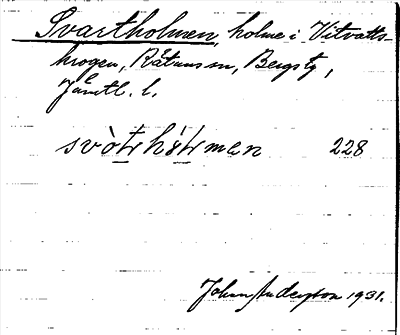 Svartholmen, holme i Vitvatts-
krogen, Rätans sn, Bergs tg,
Jämtl. l.
svòtrhòtrmen 228
Johan Anderson 1931.